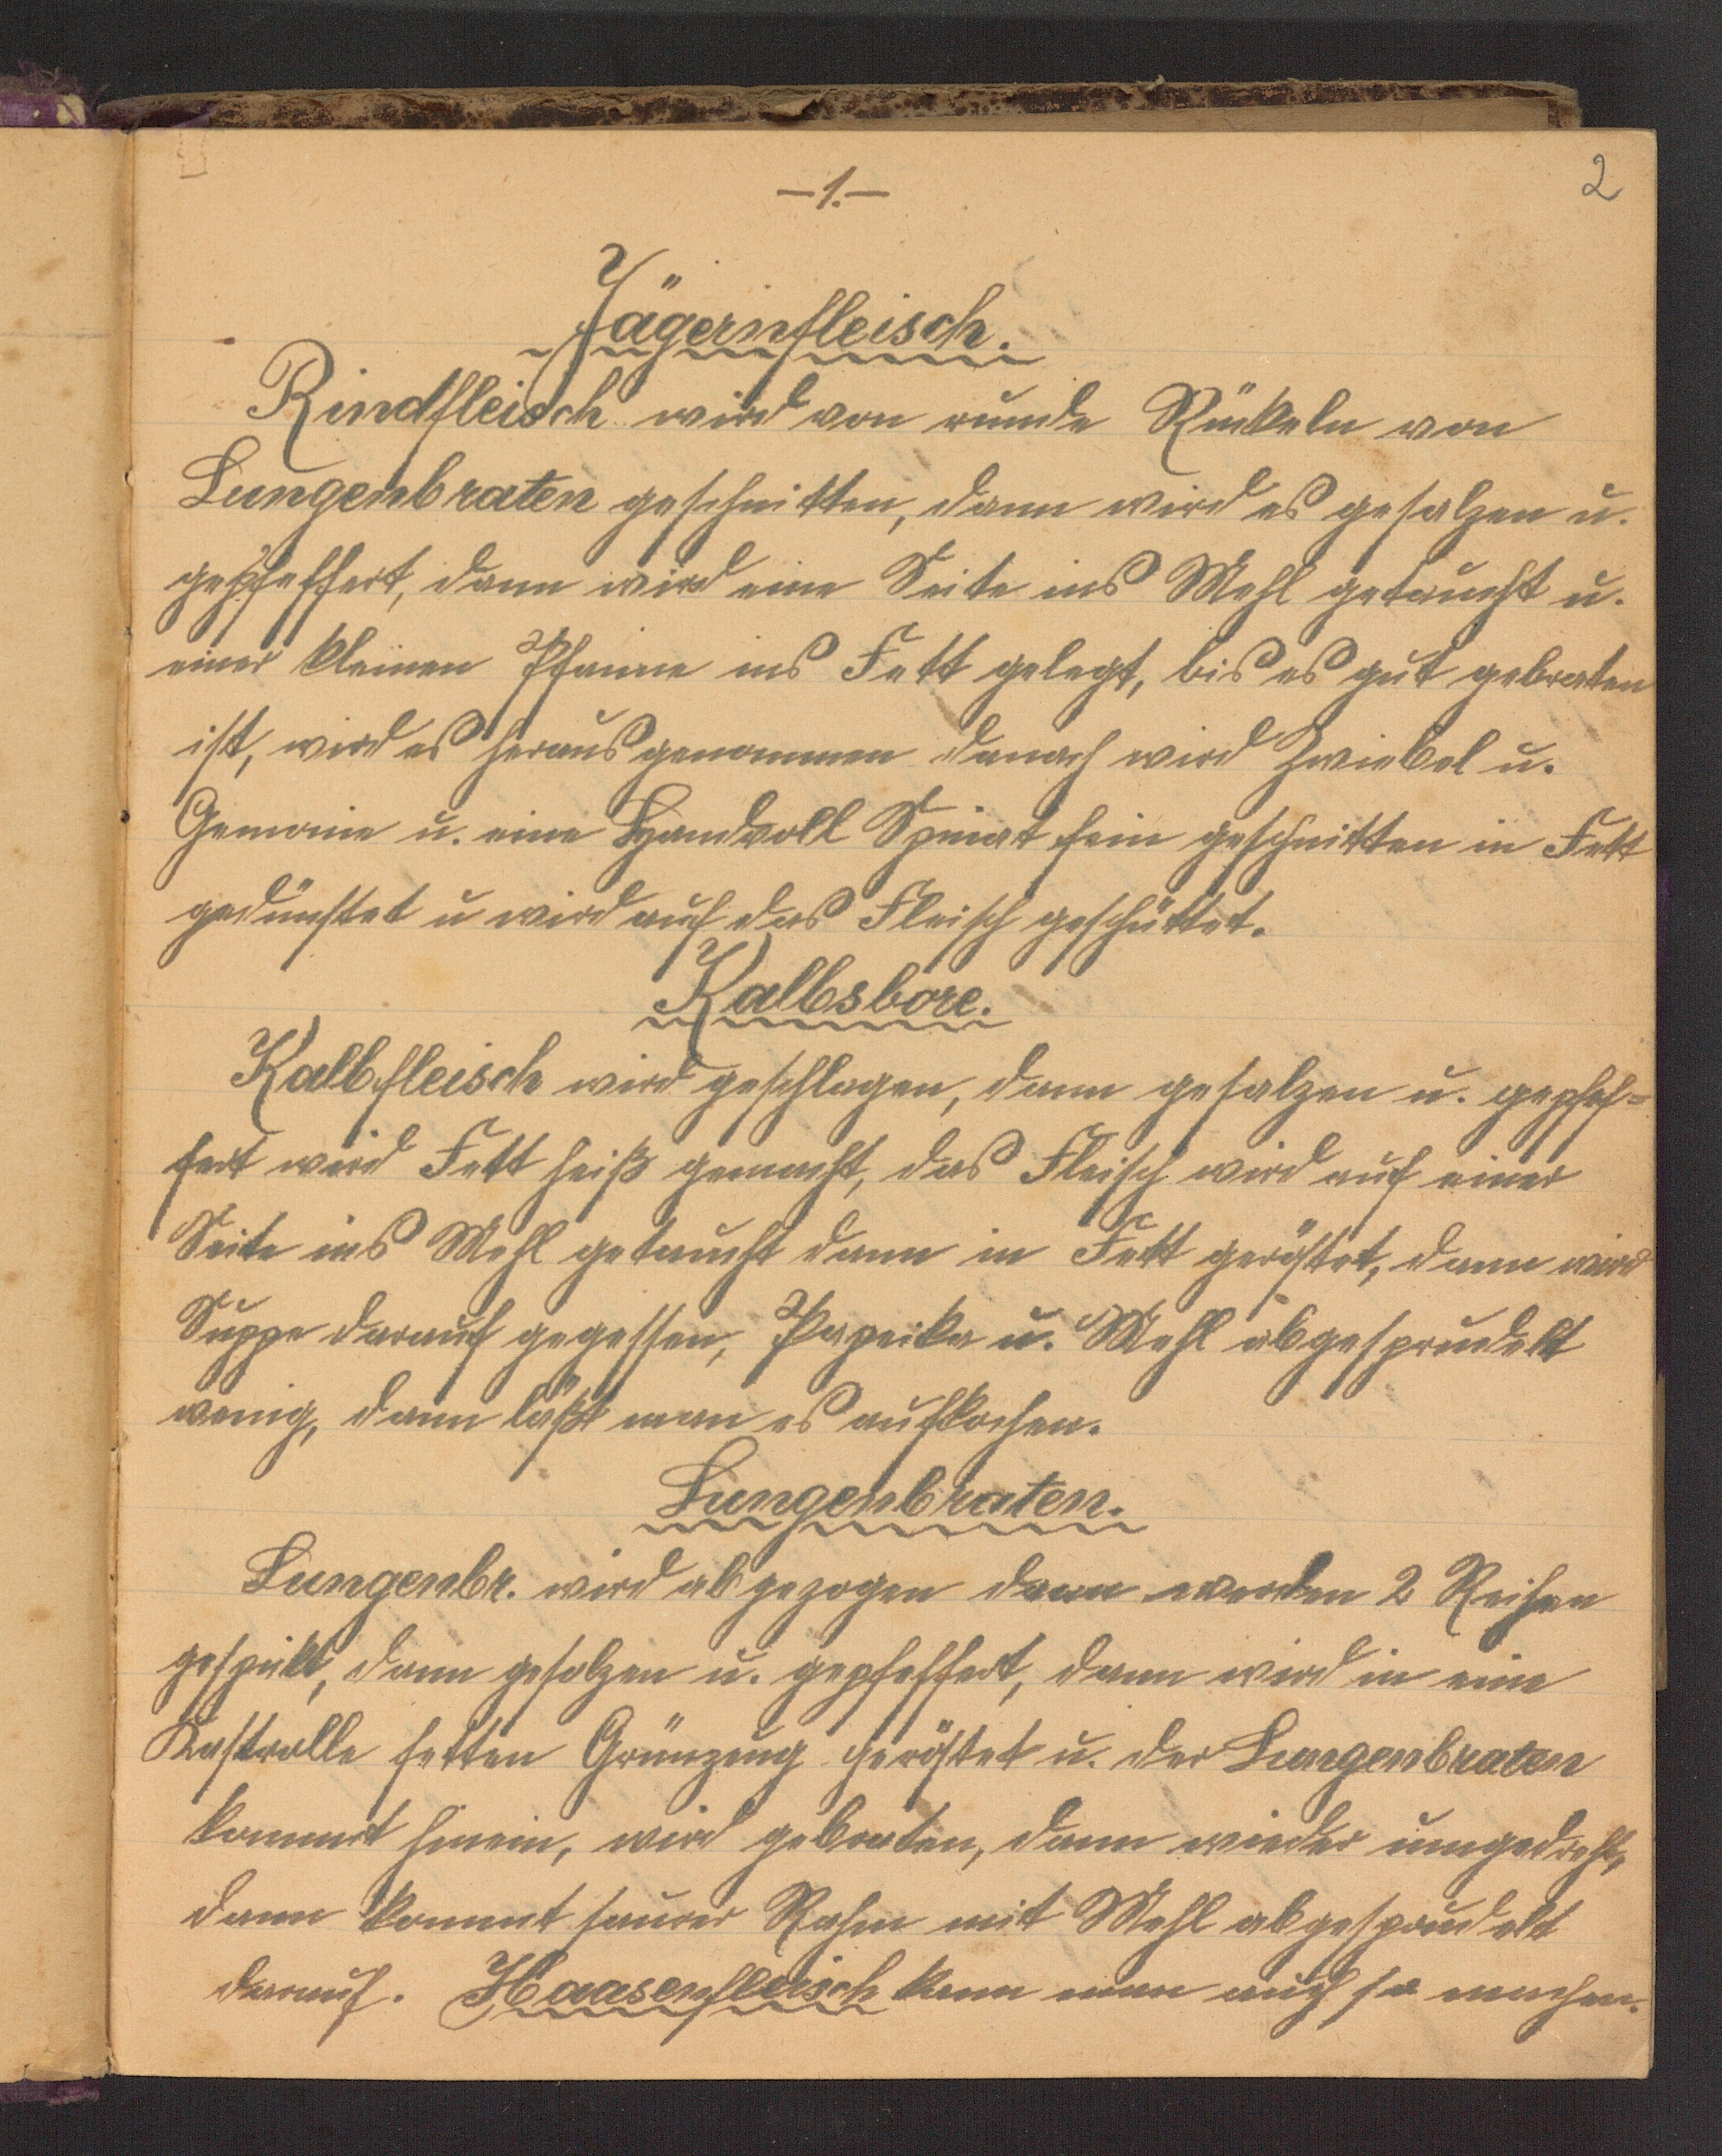 —1.—
2
Jägerinfleisch.
Rindfleisch wird von runde Stückeln von
Lungenbraten geschnitten, dann wird es gesalzen u.
gepfeffert, dann wird eine Seite ins Mehl getaucht u.
einer kleinen Pfanne ins Fett gelegt, bis es gut gebraten
ist, wird es herausgenommen danach wird Zwiebel u.
u. eine Handvoll Spinat fein geschnitten in Fett
gedünstet u wird auf das Fleisch geschüttet.
Kalbsbore.
Kalbfleisch wird geschlagen, dann gesalzen u. gepfef=
fert wird Fett heiß gemacht, das Fleisch wird auf einer
Seite ins Mehl getaucht dann in Fett geröstet, dann wird
Suppe darauf gegessen, Paprika u. Mehl abgesprudelt
wenig, dann läßt man es aufkochen.
Lungenbraten.
Lungenbr. wird abgezogen dann werden 2 Reihen
gespikt, dann gesalzen u. gepfeffert, dann wird in eine
Kastrolle fetten Grünzeug geröstet u. der Lungenbraten
kommt hinein, wird gebraten, dann wieder umgedreht,
dann kommt saurer Rahm mit Mehl abgesprudelt
darauf. Haasenfleisch kann man auch so machen.